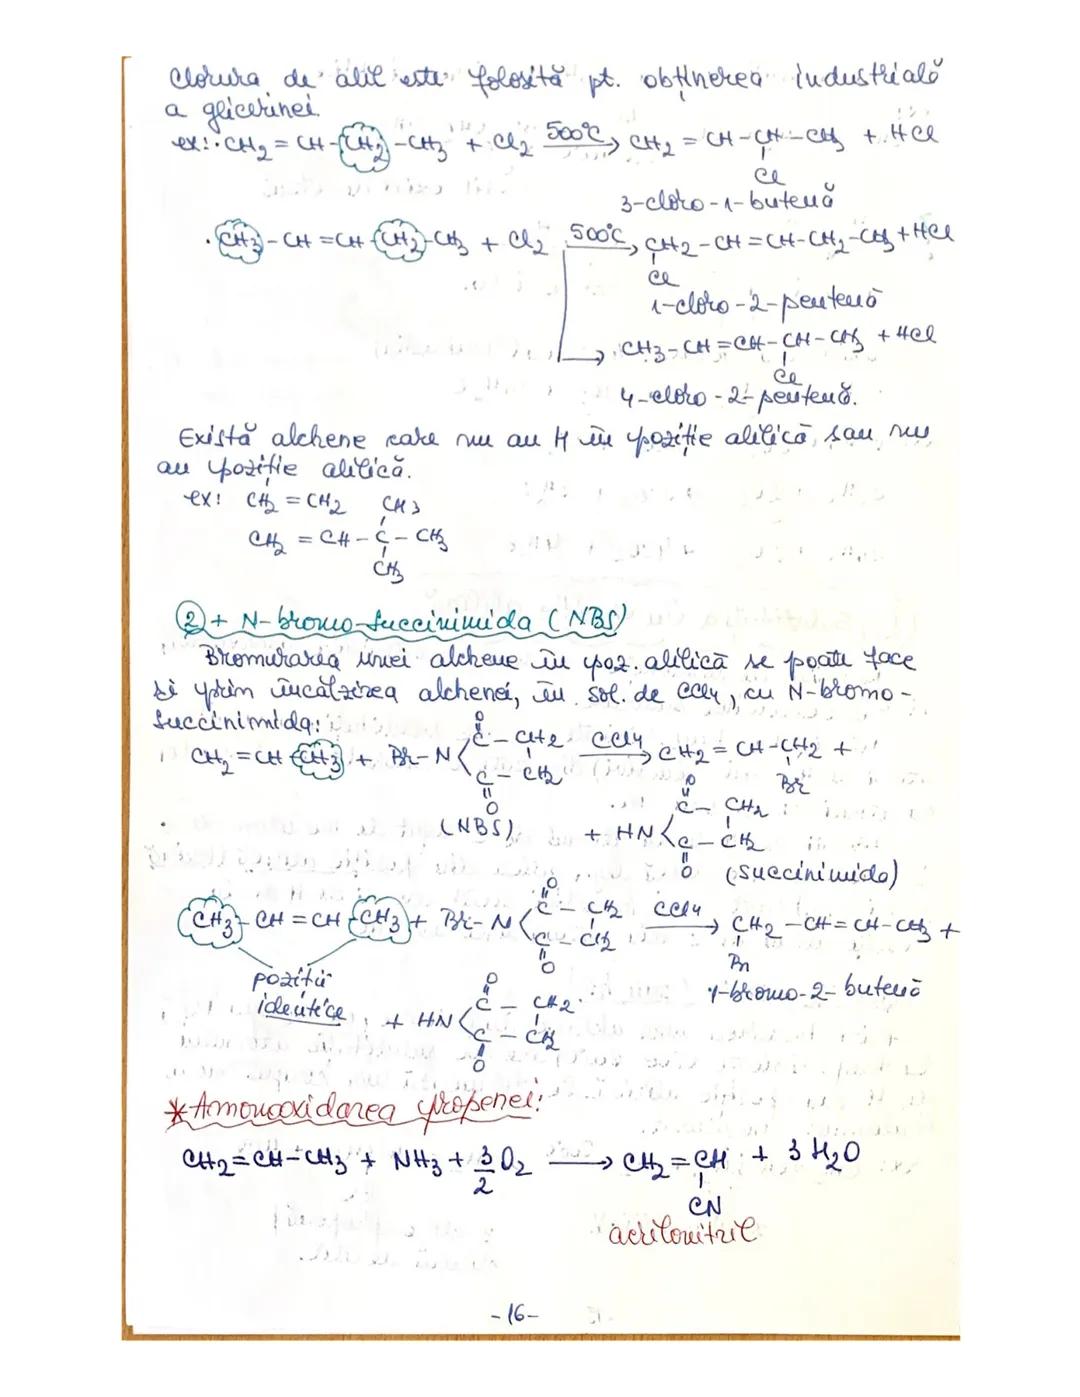 Clorura de alil este folosită pt. obținerea industrială
a glicerinei.
ex: · CH2 = CH - CH2 - CH3 + Cl2 500°C → CH2 = CH - CH - CH3 + HCl
Cl
3-cloro-1-butenă
· CH3 - CH = CH - CH2 - CH3 + Cl2 500°C → CH2 - CH = CH - CH2 - CH3 + HCl
Cl
1-cloro-2-pentenă
→ CH3 - CH = CH - CH - CH3 + HCl
Cl
4-cloro-2-pentenă.
Există alchene care nu au H în poziție alilică, sau nu
au poziție alilică.
ex: CH2 = CH2 CH3
CH2 = CH - C - CH3
CH3
② + N-bromo-succinimida (NBS)
Bromurarea unei alchene în poz. alilică se poate face
și prin încălzirea alchenei, în sol. de CCl4, cu N-bromo-
succinimida:
O
CH2 = CH - CH3 + Br-N C - CH2 CCl4 → CH2 = CH - CH2 +
C - CH2 Br
O O
C - CH2
(NBS) + HN C - CH2
O (succinimida)
O
CH3 - CH = CH - CH3 + Br-N C - CH2 CCl4 → CH2 - CH = CH - CH3 +
C - CH2 Br
O
poziții 1-bromo-2-butenă
identice O
+ HN C - CH2
C - CH2
O
* Amonooxidarea propenei:
CH2 = CH - CH3 + NH3 + 3/2 O2 → CH2 = CH + 3 H2O
CN
acrilonitril
-16-